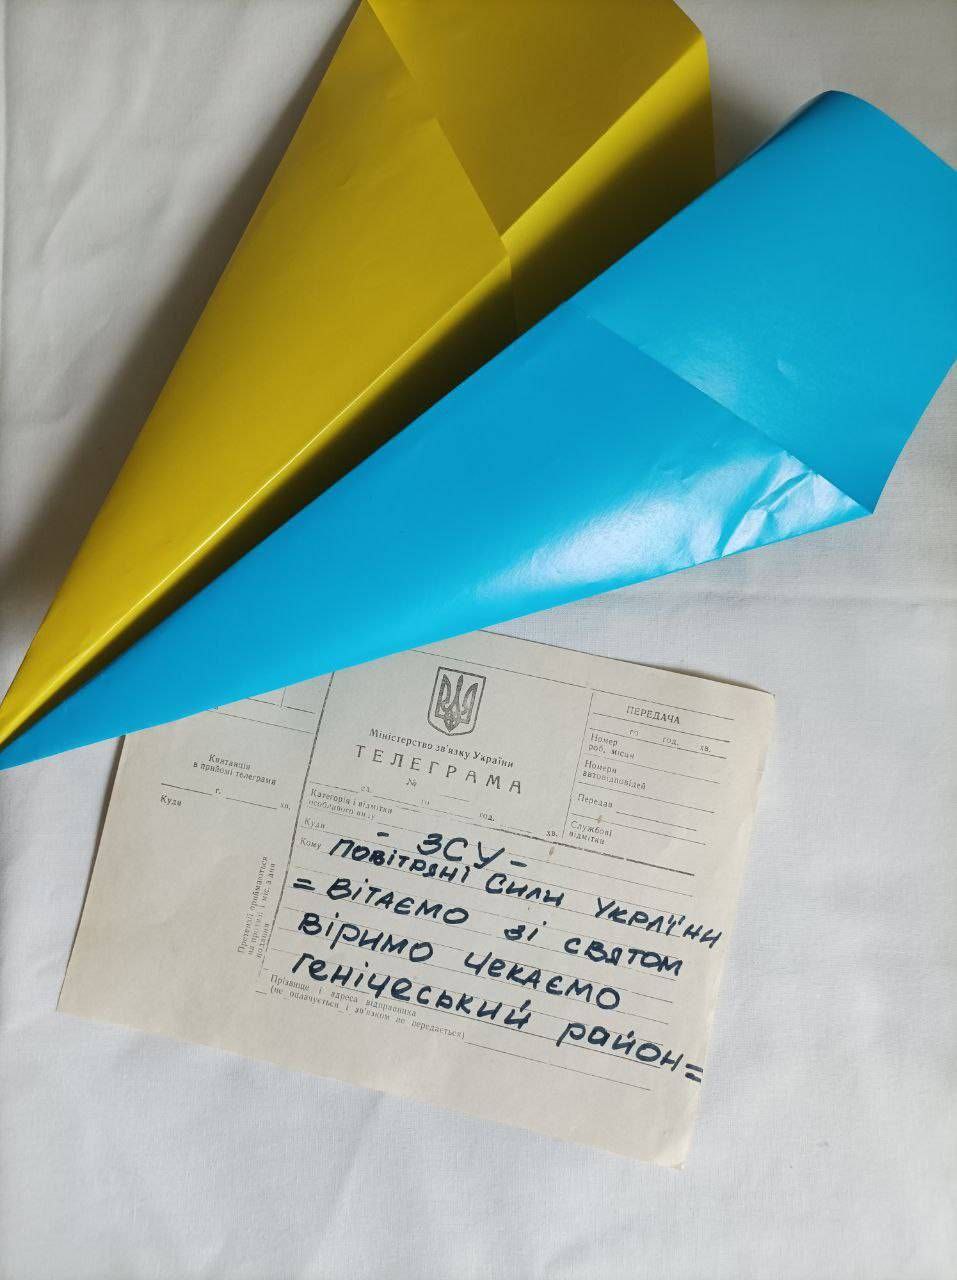 Міністерство зв'язку України
ТЕЛЕГРАМА
№
Квитанція
в прийомі телеграми
г. хв.
Куди
Претензії приймаються
на протязі 1 міс. з дня
подання
сл. го год. хв.
Категорія і відмітки
особливого виду
ПЕРЕДАЧА
го год. хв.
Номер
роб. місця
Номери
автовідповідей
Передав
Службові
відмітки
Куди - ЗСУ -
Кому ПОВІТРЯНІ СИЛИ УКРАЇНИ
= ВІТАЄМО ЗІ СВЯТОМ
ВІРИМО ЧЕКАЄМО
ГЕНІЧЕСЬКИЙ РАЙОН =
Прізвище і адреса відправника
(не оплачується і зв'язком не передається)